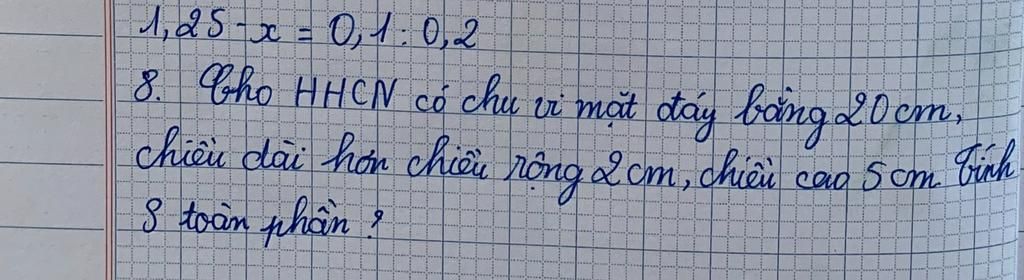 1,25 - x = 0,1 : 0,2
8. Cho HHCN có chu vi mặt đáy bằng 20 cm,
chiều dài hơn chiều rộng 2cm, chiều cao 5cm. Tính
S toàn phần ?